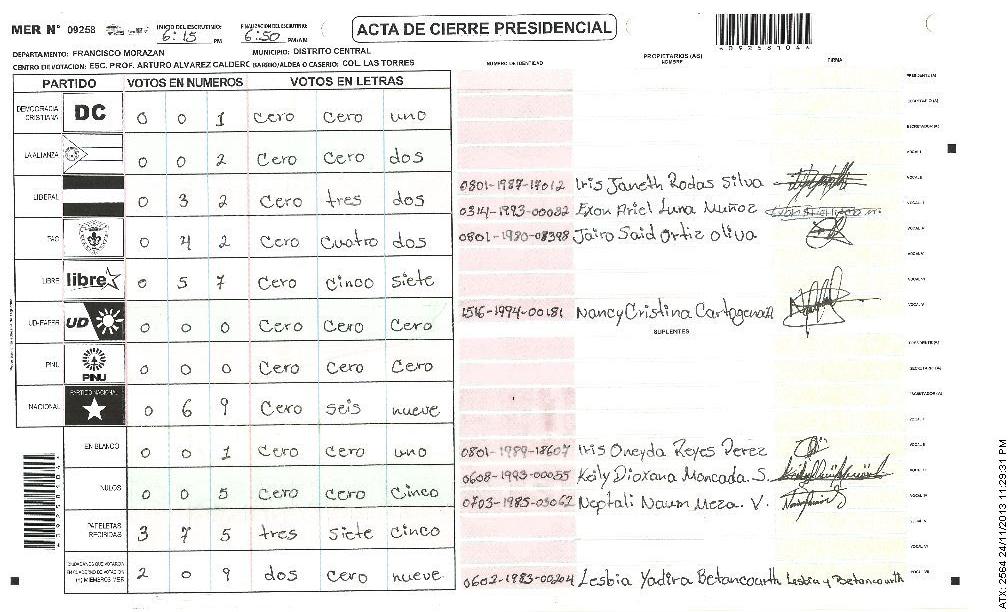 MER Nº 09258 INICIO DEL ESCRUTINIO: 6:15 PM FINALIZACION DEL ESCRUTINIO: 6:50 PM/AM
ACTA DE CIERRE PRESIDENCIAL
DEPARTAMENTO: FRANCISCO MORAZAN MUNICIPIO: DISTRITO CENTRAL
CENTRO DE VOTACION: ESC. PROF. ARTURO ALVAREZ CALDERC BARRIO/ALDEA O CASERIO: COL. LAS TORRES
NUMERO DE IDENTIDAD PROPIETARIOS (AS) NOMBRE FIRMA
PARTIDO VOTOS EN NUMEROS VOTOS EN LETRAS
DEMOCRACIA CRISTIANA DC 0 0 1 cero cero uno
LA ALIANZA 0 0 2 cero cero dos
LIBERAL 0 3 2 cero tres dos
PAC 0 4 2 cero cuatro dos
LIBRE libre 0 5 7 cero cinco siete
UD-FAPER UD 0 0 0 cero cero cero
PINU PINU 0 0 0 cero cero cero
NACIONAL PARTIDO NACIONAL 0 6 9 cero seis nueve
EN BLANCO 0 0 1 cero cero uno
NULOS 0 0 5 cero cero cinco
PAPELETAS RECIBIDAS 3 7 5 tres siete cinco
CIUDADANOS QUE VOTARON EN CUADERNO DE VOTACION (+) MIEMBROS MER 2 0 9 dos cero nueve
0801-1987-17012 Iris Janeth Rodas Silva
0314-1993-00082 Exon Ariel Luna Muñoz
0801-1980-08398 Jairo Said Ortiz oliva
1516-1994-00181 Nancy Cristina
SUPLENTES
0801-1989-18607 Iris Oneyda Reyes Perez
0608-1993-00055 Keily Dioxana Moncada S.
0703-1985-03062 Neptali Naum Meza. V.
0602-1983-00204 Lesbia Yadira Betancourth Lesbia y Betancourth
ATX: 2564 24/11/2013 11:29:31 PM